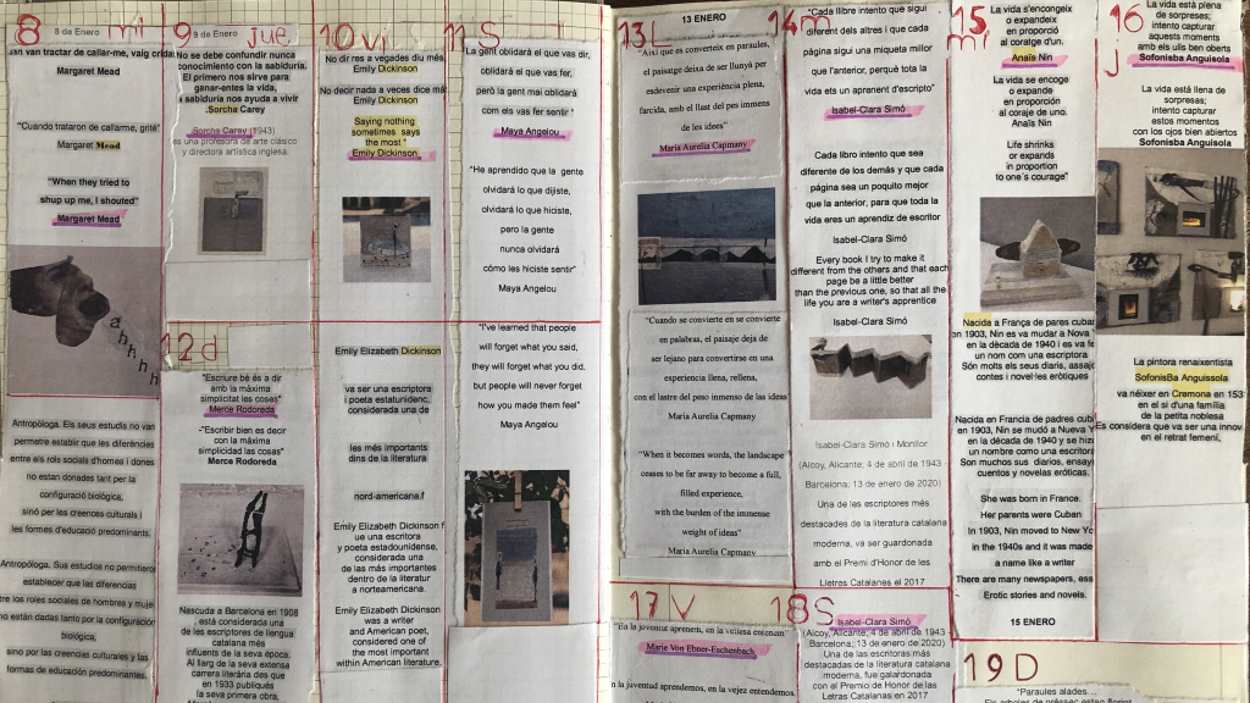 8
8 de Enero
mi
van van tractar de callar-me, vaig crida
Margaret Mead
"Cuando trataron de callarme, grité"
Margaret Mead
"When they tried to
shup up me, I shouted"
Margaret Mead
a
h
h
h
h
Antropóloga. Els seus estudis no van
permetre establir que les diferències
entre els rols socials d'homes i dones
no estan donades tant per la
configuració biològica,
sinó per les creences culturals i
les formes d'educació predominants.
Antropóloga. Sus estudios no permitieron
establecer que las diferencias
entre los roles sociales de hombres y muje
no están dadas tanto por la configuración
biológica,
sino por las creencias culturales y las
formas de educación predominantes.
9
9 de Enero
jue
No se debe confundir nunca
conocimiento con la sabiduría.
El primero nos sirve para
ganar-entes la vida,
a sabiduria nos ayuda a vivir
.Sorcha Carey
Sorcha Carey (1943)
es una profesora de arte clásico
y directora artística inglesa.
12 d
"Escriure bé és a dir
amb la màxima
simplicitat les coses"
Merce Rodoreda
-"Escribir bien es decir
con la máxima
simplicidad las cosas"
Merce Rodoreda
Nascuda a Barcelona en 1908
, está considerada una
de les escriptores de llengua
catalana més
influents de la seva època.
Al llarg de la seva extensa
carrera literària des que
en 1933 publiqués
la seva primera obra,
10 vi
No dir res a vegades diu més
Emily Dickinson
No decir nada a veces dice más
Emily Dickinson
Saying nothing
sometimes says
the most "
Emily Dickinson
Emily Elizabeth Dickinson
va ser una escriptora
i poeta estatunidenc,
considerada una de
les més importants
dins de la literatura
nord-americana.f
Emily Elizabeth Dickinson f
ue una escritora
y poeta estadounidense,
considerada una
de las más importantes
dentro de la literatur
a norteamericana.
Emily Elizabeth Dickinson
was a writer
and American poet,
considered one of
the most important
within American literature.
11 S
La gent oblidarà el que vas dir,
oblidarà el que vas fer,
però la gent mai oblidarà
com els vas fer sentir "
Maya Angelou
"He aprendido que la gente
olvidará lo que dijiste,
olvidará lo que hiciste,
pero la gente
nunca olvidará
cómo les hiciste sentir"
Maya Angelou
"I've learned that people
will forget what you said,
they will forget what you did.
but people will never forget
how you made them feel"
Maya Angelou
13 l
13 ENERO
"Així que es converteix en paraules,
el paisatge deixa de ser llunyà per
esdevenir una experiència plena,
farcida, amb el llast del pes immens
de les idees"
Maria Aurelia Capmany
"Cuando se convierte en se convierte
en palabras, el paisaje deja de
ser lejano para convertirse en una
experiencia llena, rellena,
con el lastre del peso inmenso de las ideas
Maria Aurelia Capmany
"When it becomes words, the landscape
ceases to be far away to become a full,
filled experience,
with the burden of the immense
weight of ideas"
Maria Aurelia Capmany
17 V
"En la joventut aprenem, en la vellesa entenem
Marie Von Ebner-Eschenbach
n la juventud aprendemos, en la vejez entendemos.
14 m
"Cada llibre intento que sigui
diferent dels altres i que cada
pàgina sigui una miqueta millor
que l'anterior, perquè tota la
vida ets un aprenent d'escriptor"
Isabel-Clara Simó
Cada libro intento que sea
diferente de los demás y que cada
página sea un poquito mejor
que la anterior, para que toda la
vida eres un aprendiz de escritor
Isabel-Clara Simó
Every book I try to make it
different from the others and that each
page be a little better
than the previous one, so that all the
life you are a writer's apprentice
Isabel-Clara Simó
Isabel-Clara Simó i Monllor
(Alcoy, Alicante; 4 de abril de 1943 -
Barcelona; 13 de enero de 2020)
Una de les escriptores més
destacades de la literatura catalana
moderna, va ser guardonada
amb el Premi d'Honor de les
Lletres Catalanes el 2017
18 S
Isabel-Clara Simó
(Alcoy, Alicante; 4 de abril de 1943 -
Barcelona; 13 de enero de 2020)
Una de las escritoras más
destacadas de la literatura catalana
moderna, fue galardonada
con el Premio de Honor de las
Letras Catalanas en 2017
15 mi
La vida s'encongeix
o expandeix
en proporció
al coratge d'un.
Anaïs Nin
La vida se encoge
o expande
en proporción
al coraje de uno.
Anaïs Nin
Life shrinks
or expands
in proportion
to one´s courage"
Nacida a França de pares cuba
en 1903, Nin es va mudar a Nova
en la dècada de 1940 i es va fe
un nom com una escriptora
Són molts els seus diaris, assaj
contes i novel·les eròtiques
Nacida en Francia de padres cub
en 1903, Nin se mudó a Nueva Y
en la década de 1940 y se hiz
un nombre como una escritora
Son muchos sus diarios, ensay
cuentos y novelas eróticas.
She was born in France.
Her parents were Cuban
In 1903, Nin moved to New Yo
in the 1940s and it was made
a name like a writer
There are many newspapers, ess
Erotic stories and novels.
15 ENERO
16 j
La vida està plena
de sorpreses;
intento capturar
aquests moments
amb els ulls ben oberts
Sofonisba Anguisola
La vida está llena de
sorpresas;
intento capturar
estos momentos
con los ojos bien abiertos
Sofonisba Anguisola
La pintora renaixentista
SofonisBa Anguissola
va néixer en Cremona en 153
en el si d'una família
de la petita noblesa
Es considera que va ser una innov
en el retrat femení,
19 D
"Paraules alades...